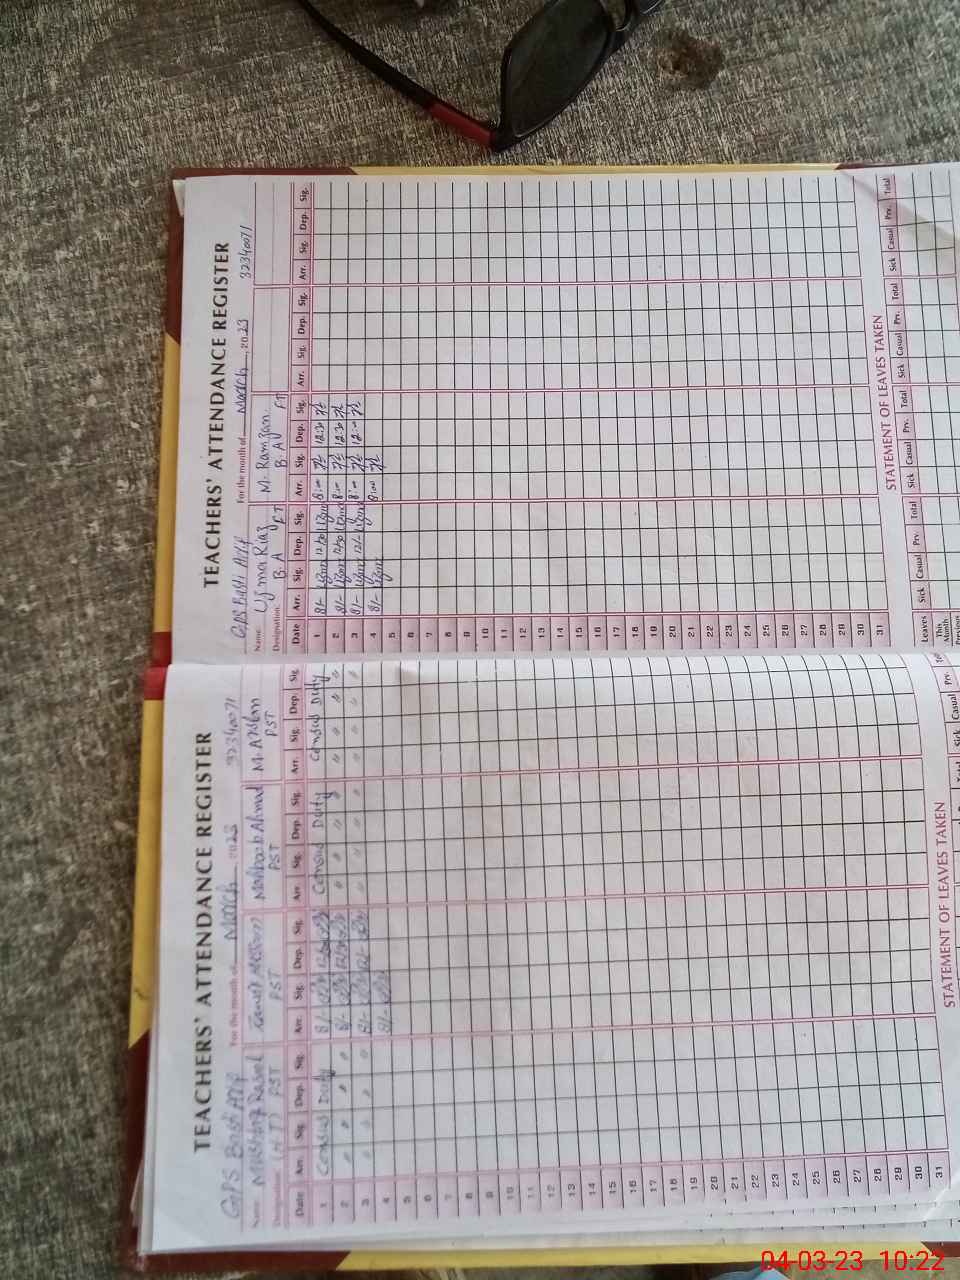 TEACHERS' ATTENDANCE REGISTER
GPS Basti Arif For the month of March, 2023 32340071
Name Mushtaq Rasool M. Aslam
Designation (H.T) PST PST PST PST
Date Arr. Sig. Dep. Sig. Arr. Sig. Dep. Sig. Arr. Sig. Dep. Sig. Arr. Sig. Dep. Sig.
1 Census Duty 8/- 12/30 Census Duty Census Duty
2 " " " " 8/- 12/30 " " " " " " " "
3 " " " " 8/- 12/- " " " " " " " "
4 8/-
5
6
7
8
9
10
11
12
13
14
15
16
17
18
19
20
21
22
23
24
25
26
27
28
29
30
31
STATEMENT OF LEAVES TAKEN
Sick Casual Prv. Total
TEACHERS' ATTENDANCE REGISTER
GPS Basti Arif For the month of March, 2023 32340071
Name: Uzma Riaz M. Ramzan
Designation: B.A FT B.A FT
Date Arr. Sig. Dep. Sig. Arr. Sig. Dep. Sig. Arr. Sig. Dep. Sig. Arr. Sig. Dep. Sig.
1 8/- Uzma 12/30 Uzma 8:00 12:30
2 8/- Uzma 12/30 Uzma 8:00 12:30
3 8/- Uzma 12/- Uzma 8:00 12:00
4 8/- Uzma 8:00
5
6
7
8
9
10
11
12
13
14
15
16
17
18
19
20
21
22
23
24
25
26
27
28
29
30
31
STATEMENT OF LEAVES TAKEN
Leaves Sick Casual Prv. Total Sick Casual Prv. Total Sick Casual Prv. Total Sick Casual Prv. Total
This Month
Previous
04-03-23 10:22